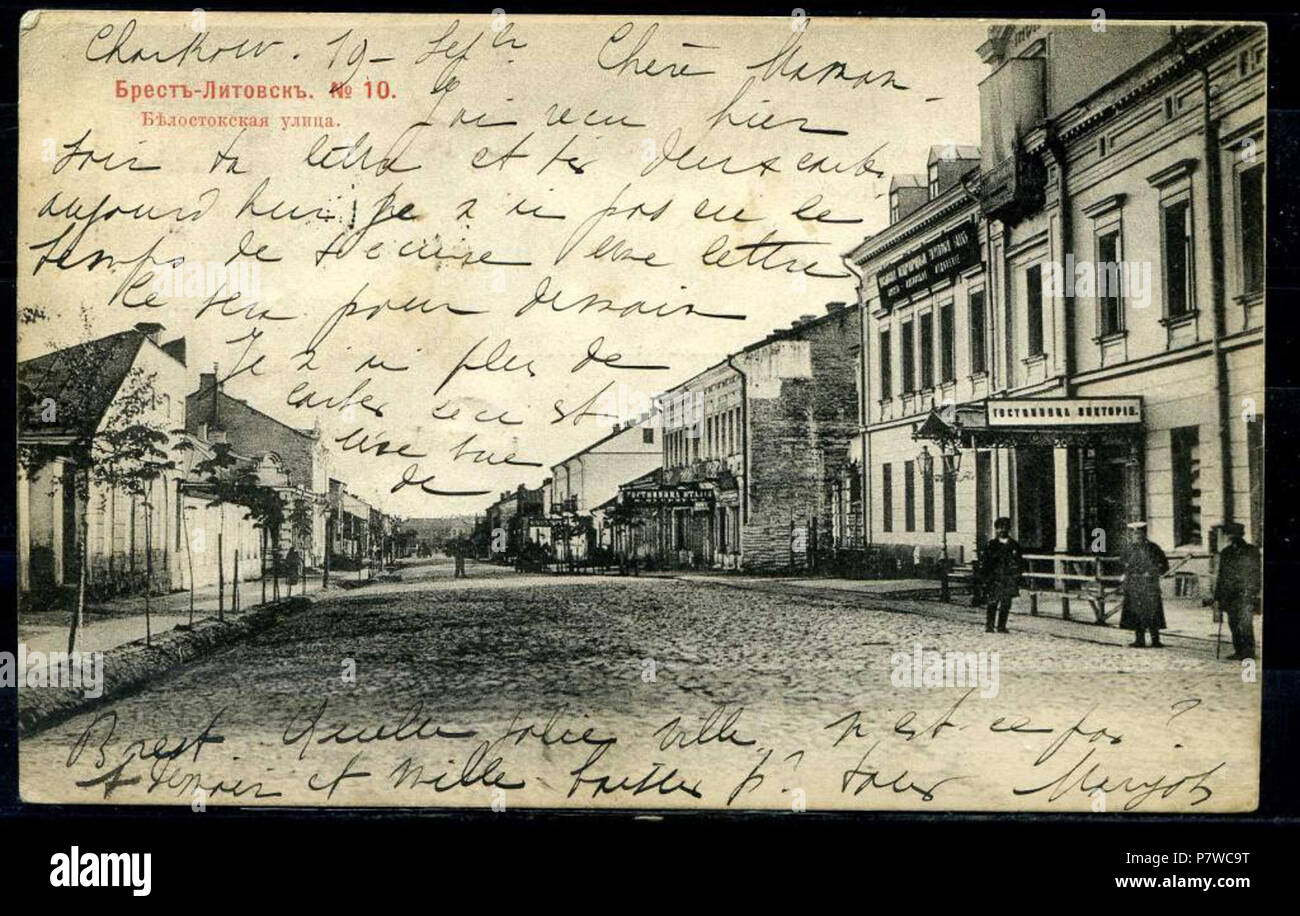 Charkow. 19 - Septbr Chère Maman -
Брестъ-Литовскъ. № 10.
Бѣлостокская улица.
J'ai reçu hier
soir ta lettre et tes deux cartes
aujourd'hui je n'ai pas eu le
temps de t'écrire une lettre
ce sera pour demain
Je n'ai plus de
cartes ceci est
une vue
de
ГОСТИННИЦА ВИКТОРІЯ.
ГОСТИННИЦА
Brest Quelle jolie ville, n'est ce pas?
A demain et mille baisers pr tous Margot
alamy
Image ID: P7WC9T
www.alamy.com